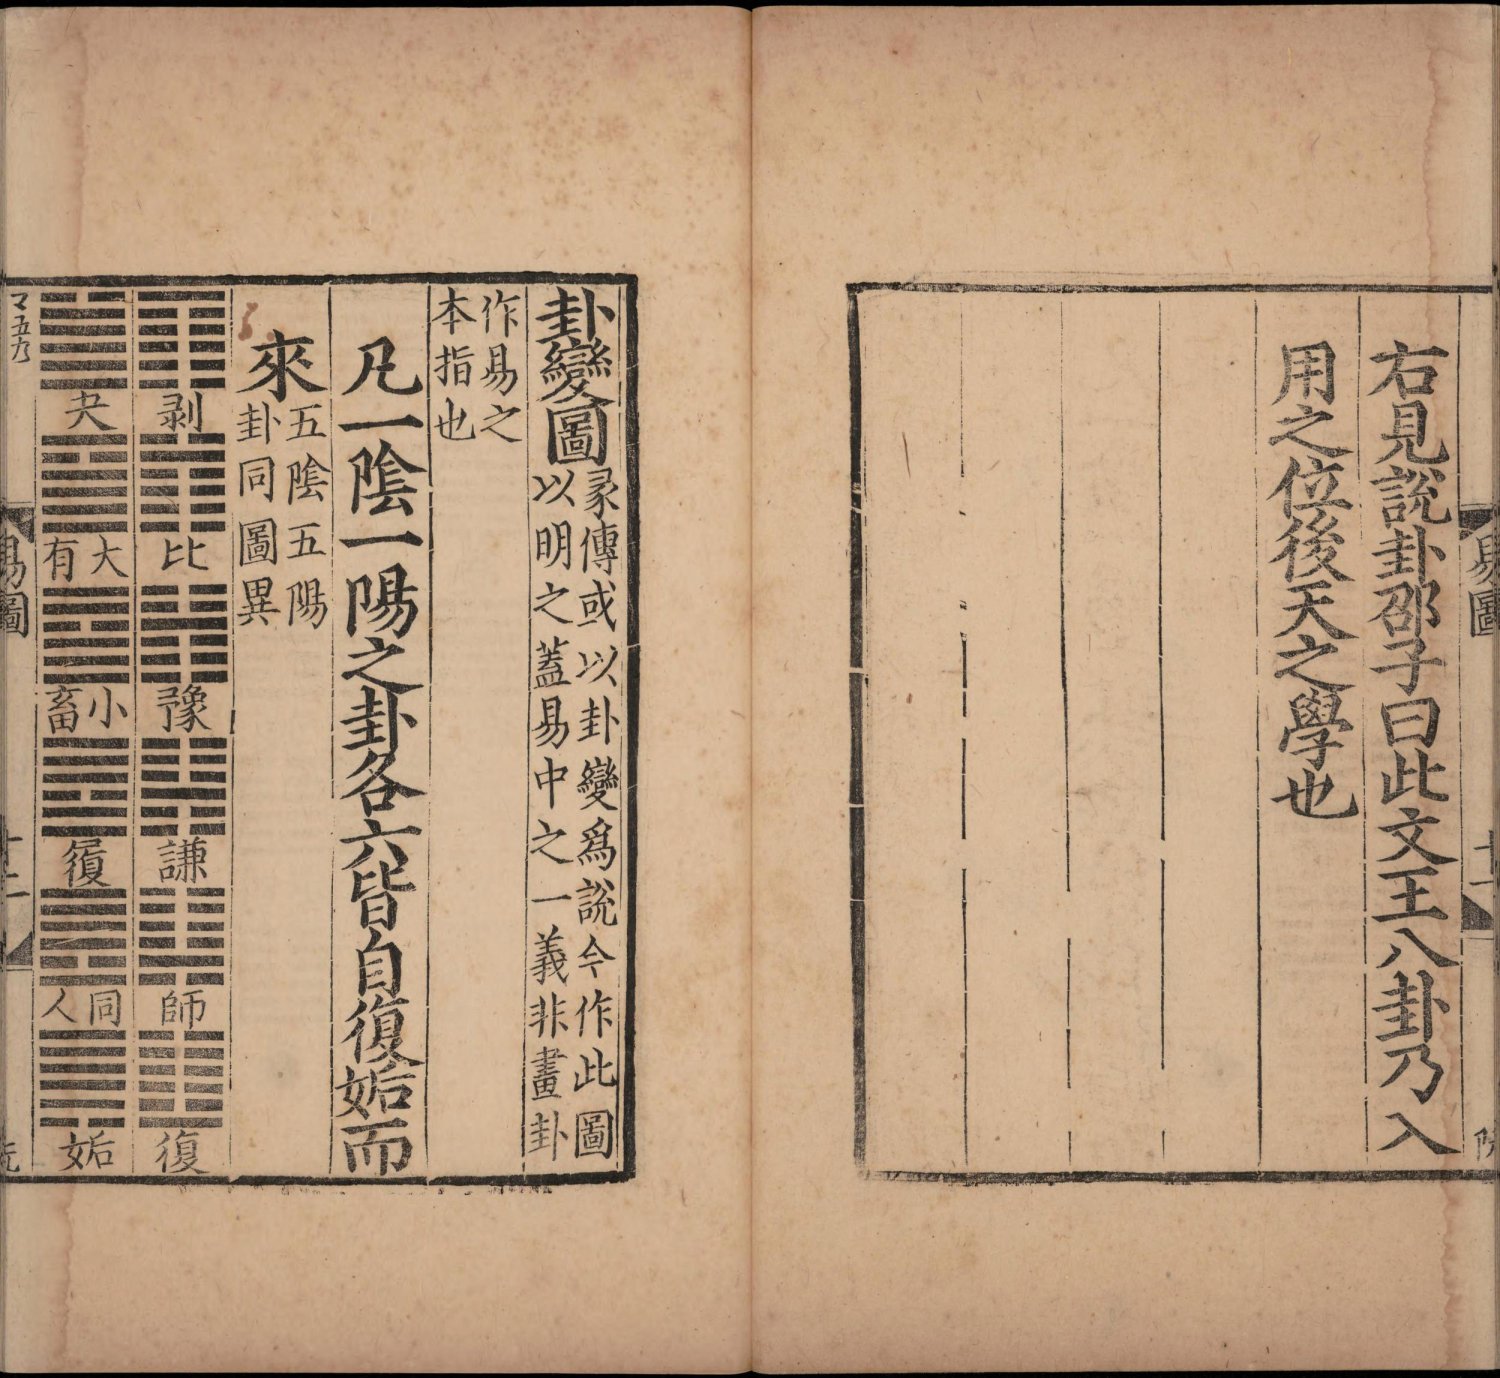 右見說卦邵子曰此文王八卦乃入
用之位後天之學也
易圖
十一
卦變圖
彖傳或以卦變爲說今作此圖
以明之蓋易中之一義非畫卦
作易之
本指也
凡一陰一陽之卦各六皆自復姤而
來
五陰五陽
卦同圖異
剥 比 豫 謙 師 復
夬 大有 小畜 履 同人 姤
易圖
十二